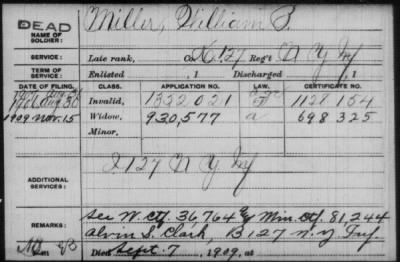 DEAD
NAME OF SOLDIER: Miller, William B.
SERVICE: Late rank, Co. K, 127 Reg't N Y Inf
TERM OF SERVICE: Enlisted , 1 Discharged , 1
DATE OF FILING. CLASS. APPLICATION NO. LAW. CERTIFICATE NO.
Aug. 30 Invalid, 1332021 1128154
1909 Nov. 15 Widow, 930,577 a 698325
Minor,
ADDITIONAL SERVICES: I 127 N Y Inf
REMARKS: See W. Ctf. 36,764 & Min. Ctf. 81,244
Alvin S. Clark, B 127 N.Y. Inf.
Died Sept. 7, 1909, at